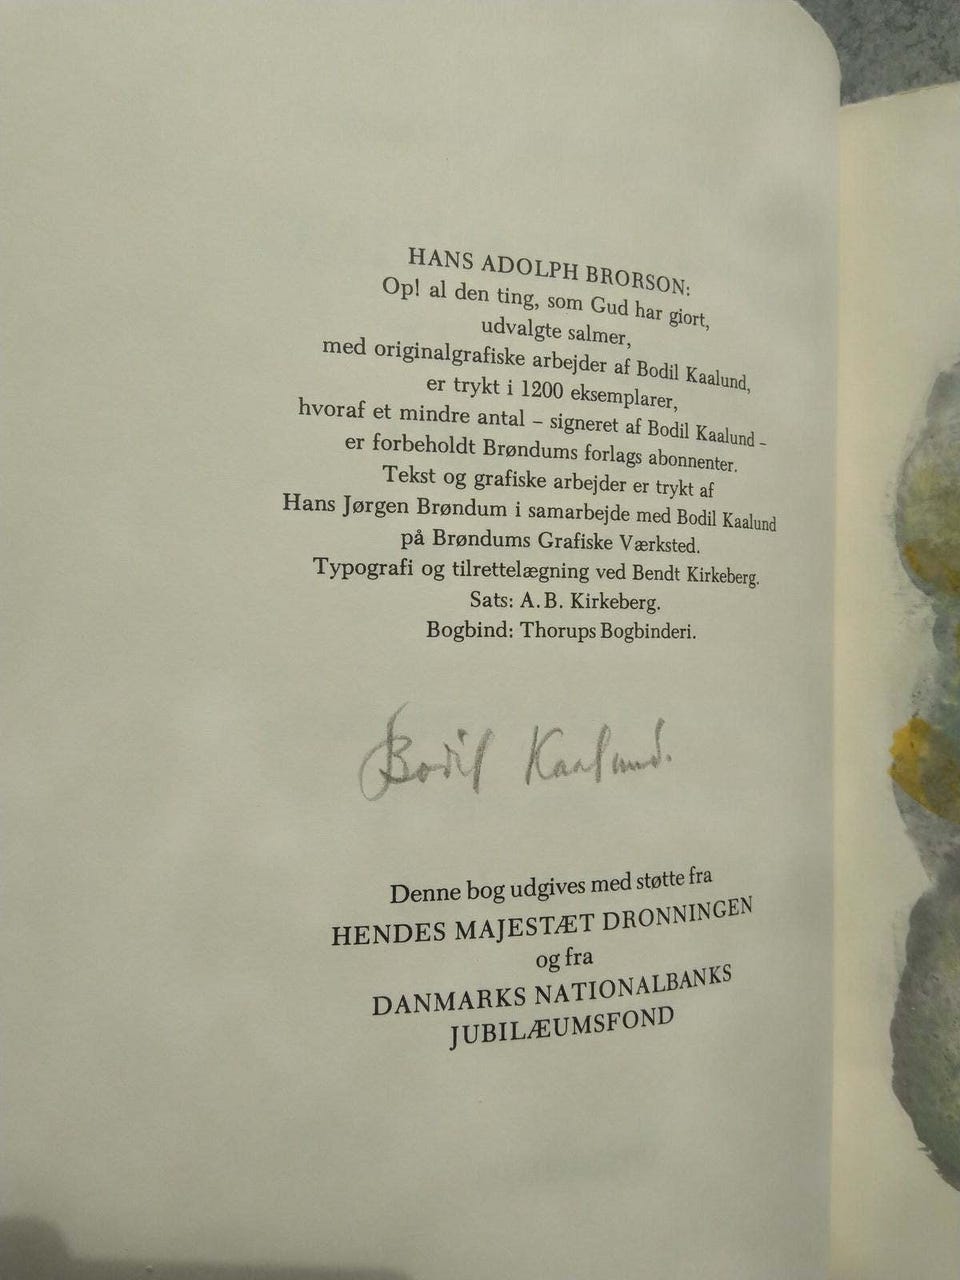 HANS ADOLPH BRORSON:
Op! al den ting, som Gud har giort,
udvalgte salmer,
med originalgrafiske arbejder af Bodil Kaalund,
er trykt i 1200 eksemplarer,
hvoraf et mindre antal – signeret af Bodil Kaalund –
er forbeholdt Brøndums forlags abonnenter.
Tekst og grafiske arbejder er trykt af
Hans Jørgen Brøndum i samarbejde med Bodil Kaalund
på Brøndums Grafiske Værksted.
Typografi og tilrettelægning ved Bendt Kirkeberg.
Sats: A.B. Kirkeberg.
Bogbind: Thorups Bogbinderi.
Bodil Kaalund.
Denne bog udgives med støtte fra
HENDES MAJESTÆT DRONNINGEN
og fra
DANMARKS NATIONALBANKS
JUBILÆUMSFOND